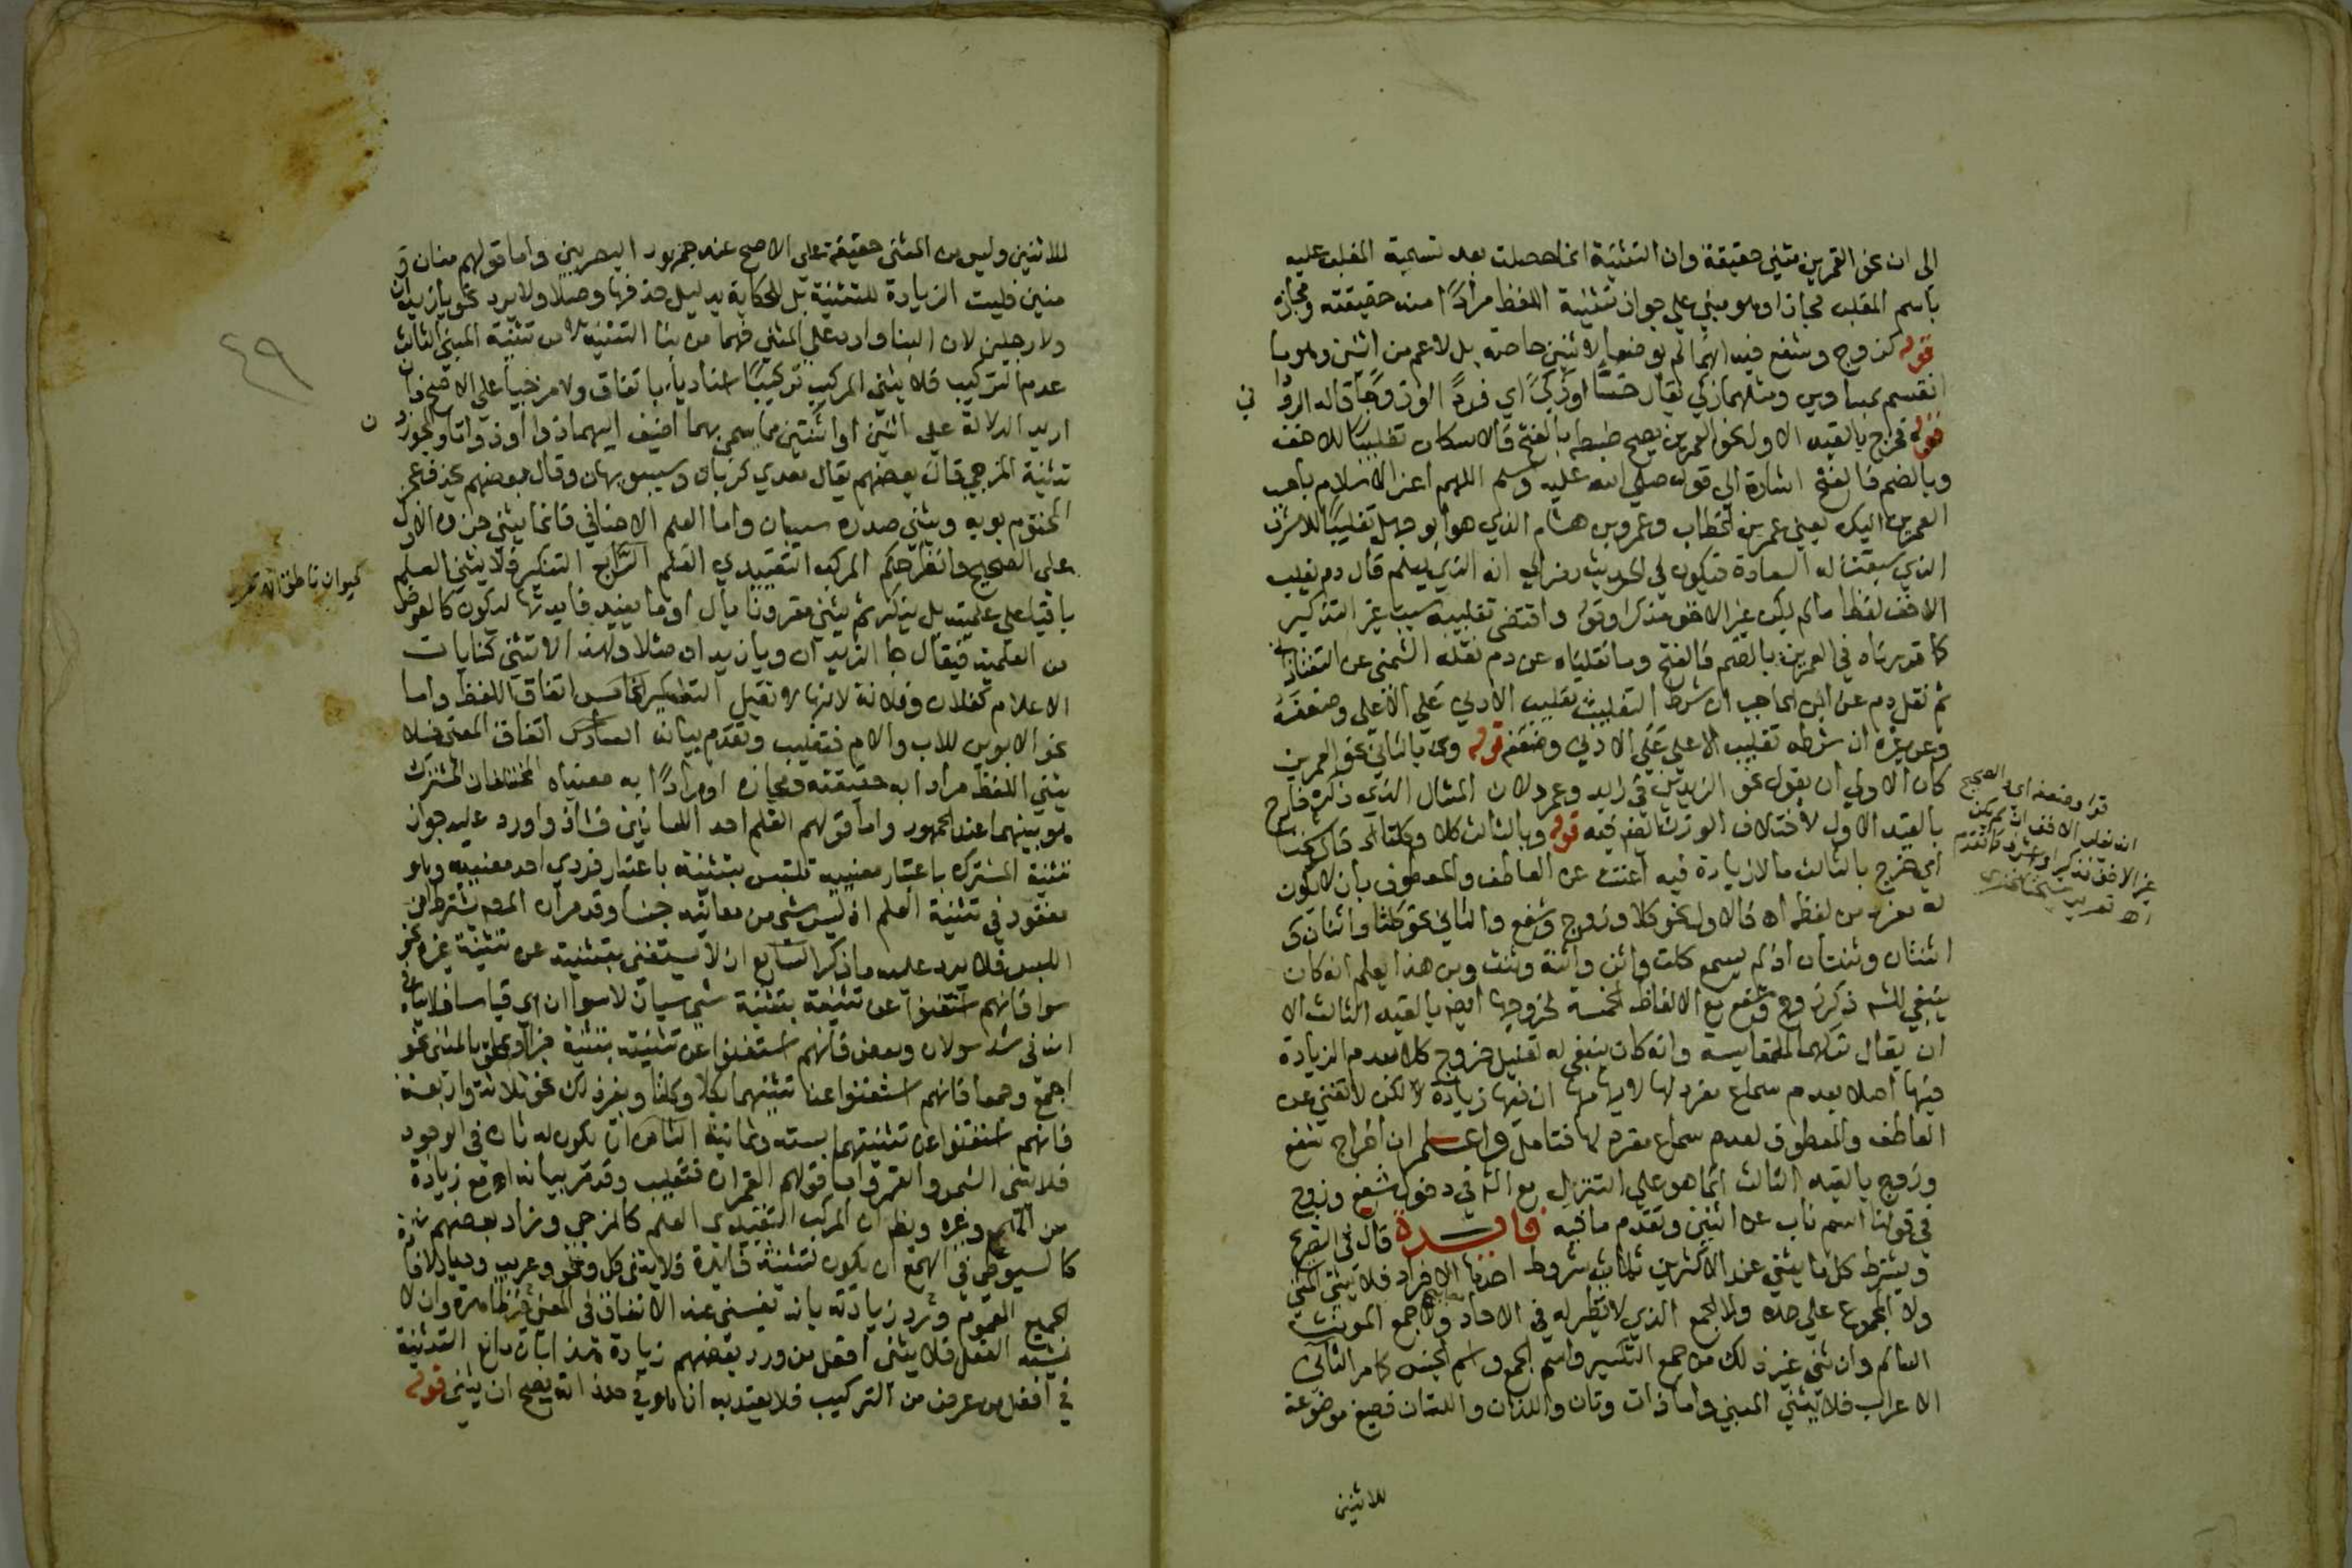 الى ان نحو القمرين مثني حقيقة وان التثنية انما حصلت بعد تسمية المغلب عليه
باسم المغلب مجازا وهو مبني علي جواز تثنية اللفظ مرادًا منه حقيقته ومجازه
قوله كزوج وشفع فيه انهما لم يوضعا لاثنين خاصة بل لاعم من اثنين وهو ما
انقسم بمتساويين ومثلهما زكي يقال خسًا اوزكيً اي فردً اوزوجًا قاله الرودا
ني
قوله فخرج بالقيد الاول نحو العمرين يصح ضبطه بالفتح فالاسكان تغليبًا للاخف
وبالضم فالفتح اشارة الي قوله صلي الله عليه وسلم اللهم اعز الاسلام باحب
العمرين اليك يعني عمر بن الخطاب وعمرو بن هشام الذي هو ابو جهل تغليبًا للاشرف
الذي سبقت له السعادة فيكون في الحديث رمز الي انه الذي يسلم قال دم يغلب
الاخف لفظا ما لم يكن غير الاخف مذكرا وقد اقتضى تغليبه سبب غير التذكير
كما قدرناه في العمرين بالضم فالفتح وما نقلناه عن دم نقله الشمني عن التفتازاني
ثم نقل دم عن ابن الحاجب ان شرط التغليب تغليب الادني علي الاعلي وضعفه
وعن غيره ان شرطه تغليب الاعلي علي الادني وضعفه قوله وبالثاني نحو العمرين
كان الاولي ان يقول نحو الزيدين في زيد وعمرو لان المثال الذي ذكره خارج
بالقيد الاول لاختلاف الوزن فيه قوله وبالثالث كلا وكلتا الخ قال شيخنا
اي خرج بالثالث ما لا زيادة فيه اغنت عن العاطف والمعطوف بان لا يكون
له مفرد من لفظه اه فالاول نحو كلا وزوج وشفع والثاني نحو كلتا واثنان و
اثنتان وثنتان اذ لم يسمع كلت واثن واثنة وثنت ومن هذا يعلم انه كان
ينبغي للشـ ذكر زوج وشفع مع الالفاظ الخمسة لخروجها ايضا بالقيد الثالث الا
ان يقال تركهما للمقايسة وانه كان ينبغي له تعليل خروج كلا بعدم الزيادة
فيها اصلا بعدم سماع مفرد لها لايهامها ان فيها زيادة لكن لا تغني عن
العاطف والمعطوف لعدم سماع مفرد لها فتامل واعلم ان اخراج شفع
وزوج بالقيد الثالث انما هو علي التنزل مع الشـ في دخول شفع وزوج
في قولنا اسم ناب عن اثنين وتقدم ما فيه فايدة قال في التصريح
ويشترط كل ما يثني عند الاكثرين ثمانية شروط احدها الافراد فلا يثني المثني
ولا المجموع علي حده ولا الجمع الذي لا نظير له في الاحاد ولا جمع المونث
السالم وان ثني غير ذلك من جمع التكسير واسم الجمع واسم الجنس كما مر الثاني
الاعراب فلا يثني المبني واما ذان وتان واللذان واللتان فصيغ موضوعة
للاثنين
قوله وضعفه اي والصحيح
انه تغلب الاخف ان لم يكن
غير الاخف مذكرا او اشرف كما تقدم
اه تقرير شيخنا
للاثنين وليس من المثنى حقيقة علي الاصح عند جمهور البصريين واما قولهم منان و
منين فليست الزيادة للتثنية بل للحكاية بدليل حذفها وصلا ولا يرد نحو يا زيدان
ولا رجلين لان البنا وارد علي المثني فهما من بنا التثنية لا من تثنية المبني الثالث
عدم التركيب فلا يثني المركب تركيبًا اسناديا باتفاق ولا مزجيا علي الاصح فان
اريد الدلالة علي اثنين او اثنتين مما سمي بهما اضيف اليهما ذوا او ذواتا وجوز
ن
تثنية المزجي قال بعضهم يقال معدي كربان وسيبويهان وقال بعضهم يحذف عجز
المختوم بويه ويثني صدره سيبان واما العلم الاضافي فانما يثني جزؤه الاول
علي الصحيح وانظر حكم المركب التقييدي العلم الرابع التنكير فلا يثني العلم
باقيا علي علميته بل ينكر ثم يثني مقرونا بال او ما يفيد فايدتها ليكون كالعوض
من العلمية فيقال جا الزيدان ويا زيدان مثلا ولهذا لا تثني كنايات
الاعلام كفلان وفلانة لانها لا تقبل التنكير الخامس اتفاق اللفظ واما
نحو الابوين للاب والام فتغليب وتقدم بيانه السادس اتفاق المعني فلا
يثني اللفظ مرادا به حقيقته ومجازه او مرادًا به معنياه المختلفان المشترك
هو بينهما عند الجمهور واما قولهم القلم احد اللسانين فشاذ واورد عليه جواز
تثنية المشترك باعتبار معنييه تلتبس بتثنيته باعتبار فردي احد معنييه وهو
مفقود في تثنية العلم اذ ليس شي من معانيه جنسا وقد مر ان المصـ يشترط امن
اللبس فلا يرد عليه ما ذكر السابع ان لا يستغني بتثنيته عن تثنية غيره نحو
سوا فانهم استغنوا عن تثنيته بتثنية سي سيان لا سواان اي قياسا فلا ينافي
انه في شذ سوان وبعض فانهم استغنوا عن تثنيته بتثنية جزء او بملحق بالمثني نحو
اجمع وجمعا فانهم استغنوا عن تثنيتهما بكلا وكلتا وبغير ذلك نحو ثلاثة واربعة
فانهم استغنوا عن تثنيتهما بستة وثمانية الثامن ان يكون له ثان في الوجود
فلا تثنى الشمس والقمر واما قولهم القمران فتغليب وقد مر بيانه اه مع زيادة
من الهمع وغيره ويظهر ان المركب التقييدي العلم كالمزجي وزاد بعضهم
كالسيوطي في الهمع ان يكون لتثنيته فايدة فلا يثني كل ونحو وعريب وديار لافادة
الجميع العموم ورد زيادته بانه يغني عنه الاتفاق في المعني وان لا
يشبه الفعل فلا يثني افعل من ورد بعضهم زيادة هذا بان مانع التثنية
في افعل من عرض من التركيب فلا يعتد به انما هو في حد ذاته يصح ان يثنى قوله
٤٩